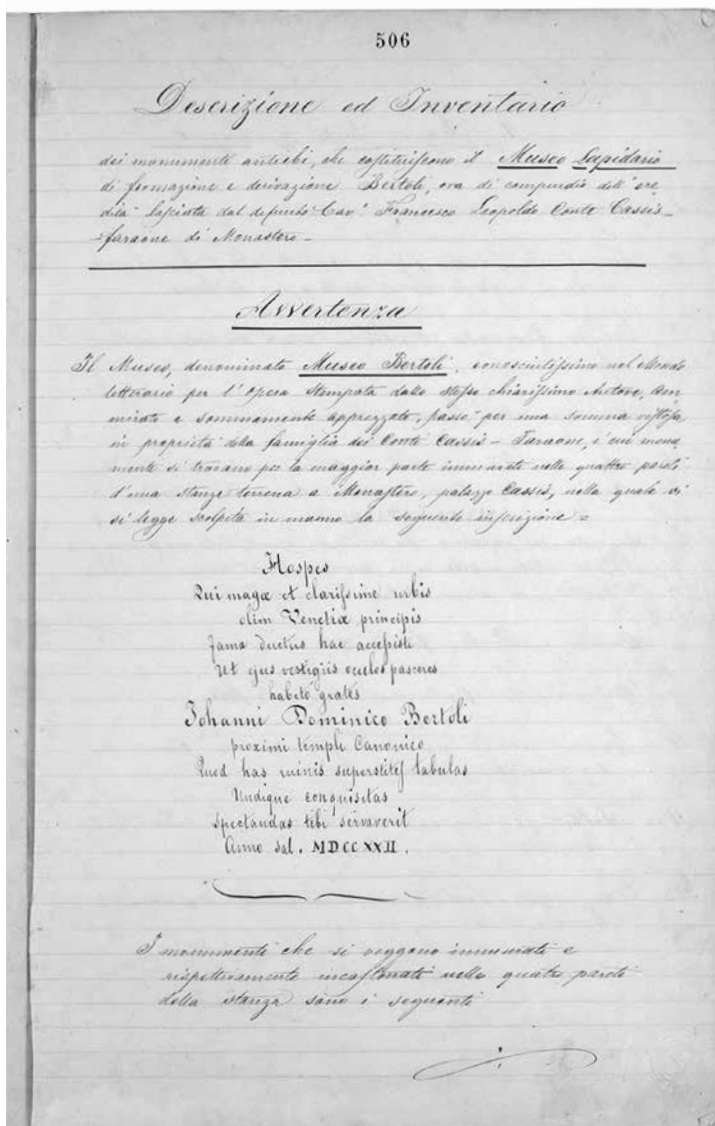 506
Descrizione ed Inventario
dei monumenti antichi, che costituiscono il Museo Lapidario
di formazione e derivazione Bertoli, ora di compendio dell' ere
dità lasciata dal defunto Cav.e Francesco Leopoldo Conte Cassis-
-faraone di Monastero-
Avvertenza
Il Museo, denominato Museo Bertoli, conosciutissimo nel Mondo
letterario per l' opera stampata dallo stesso chiarissimo Autore, am
mirato e sommamente apprezzato, passò per una somma
in proprietà della famiglia dei Conti Cassis-Faraone, i cui monu
menti si trovano per la maggior parte immurati nelle quattro pareti
d'una stanza terrena a Monastero, palazzo Cassis, nella quale vi
si legge scolpita in marmo la seguente inscrizione=
Hospes
Qui magæ et clarissime urbis
olim Venetiæ principis
fama ductus hac accessisti
Ut ejus vestigiis oculos pasceres
habeto grates
Johanni Dominico Bertoli
proximi templi Canonico
Quod has ruinis superstites tabulas
Undique conquisitas
Spectandas tibi servaverit
Anno sal. MDCCXXII.
I monumenti che si veggono immurati e
rispettivamente incastonati nelle quattro pareti
della stanza sono i seguenti